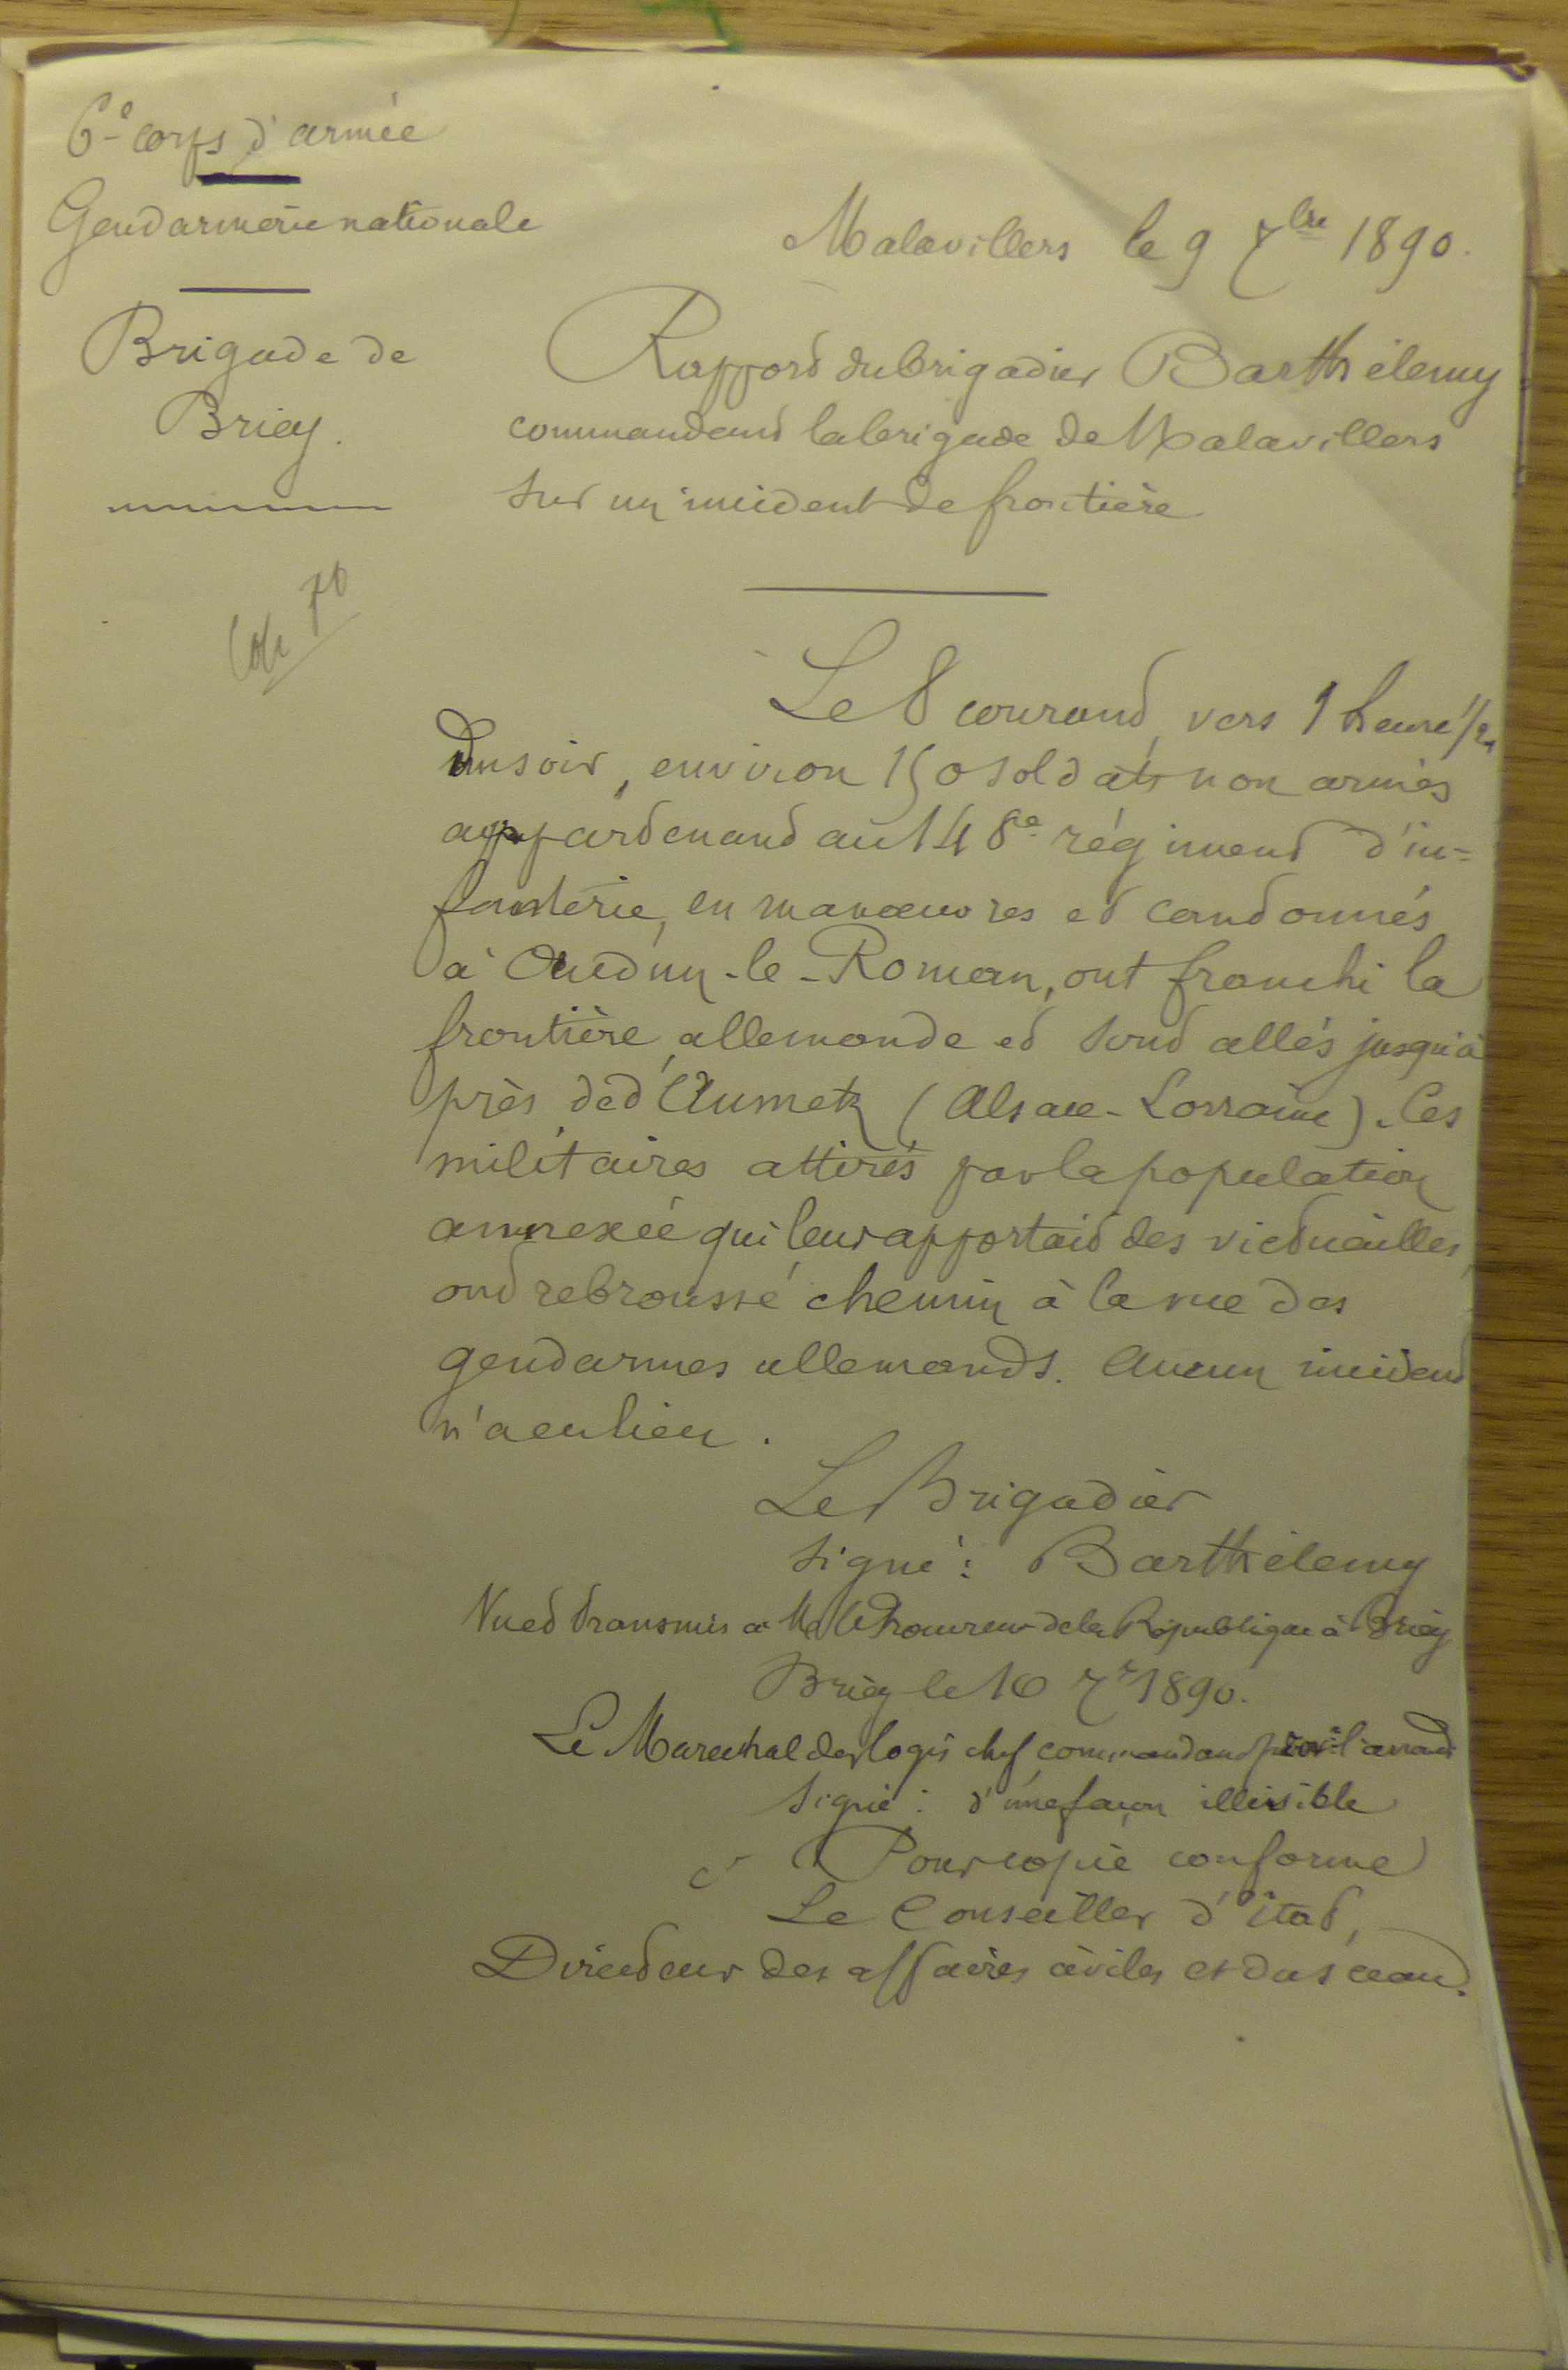 6e corps d'armée
Gendarmerie nationale
Malavillers le 9 7bre 1890.
Brigade de
Briey.
Rapport du brigadier Barthélemy
commandant la brigade de Malavillers
sur un incident de frontière
Le 8 courant, vers 1 heure 1/2
du soir, environ 150 soldats non armés
appartenant au 148e régiment d'in=
fanterie, en manœuvres et cantonnés
à Audun-le-Roman, ont franchi la
frontière allemande et sont allés jusqu'à
près d'Aumetz (Alsace-Lorraine). Ces
militaires attirés par la population
annexée qui leur apportait des victuailles,
ont rebroussé chemin à la vue des
gendarmes allemands. Aucun incident
n'a eu lieu.
Le Brigadier
signé : Barthélemy
Vu et transmis à M. le Procureur de la République à Briey
Briey le 10 7r 1890.
Le Marechal des logis chef commandant l'arrondt
signé : d'une façon illisible
Pour copie conforme
Le Conseiller d'Etat,
Directeur des affaires civiles et du sceau.